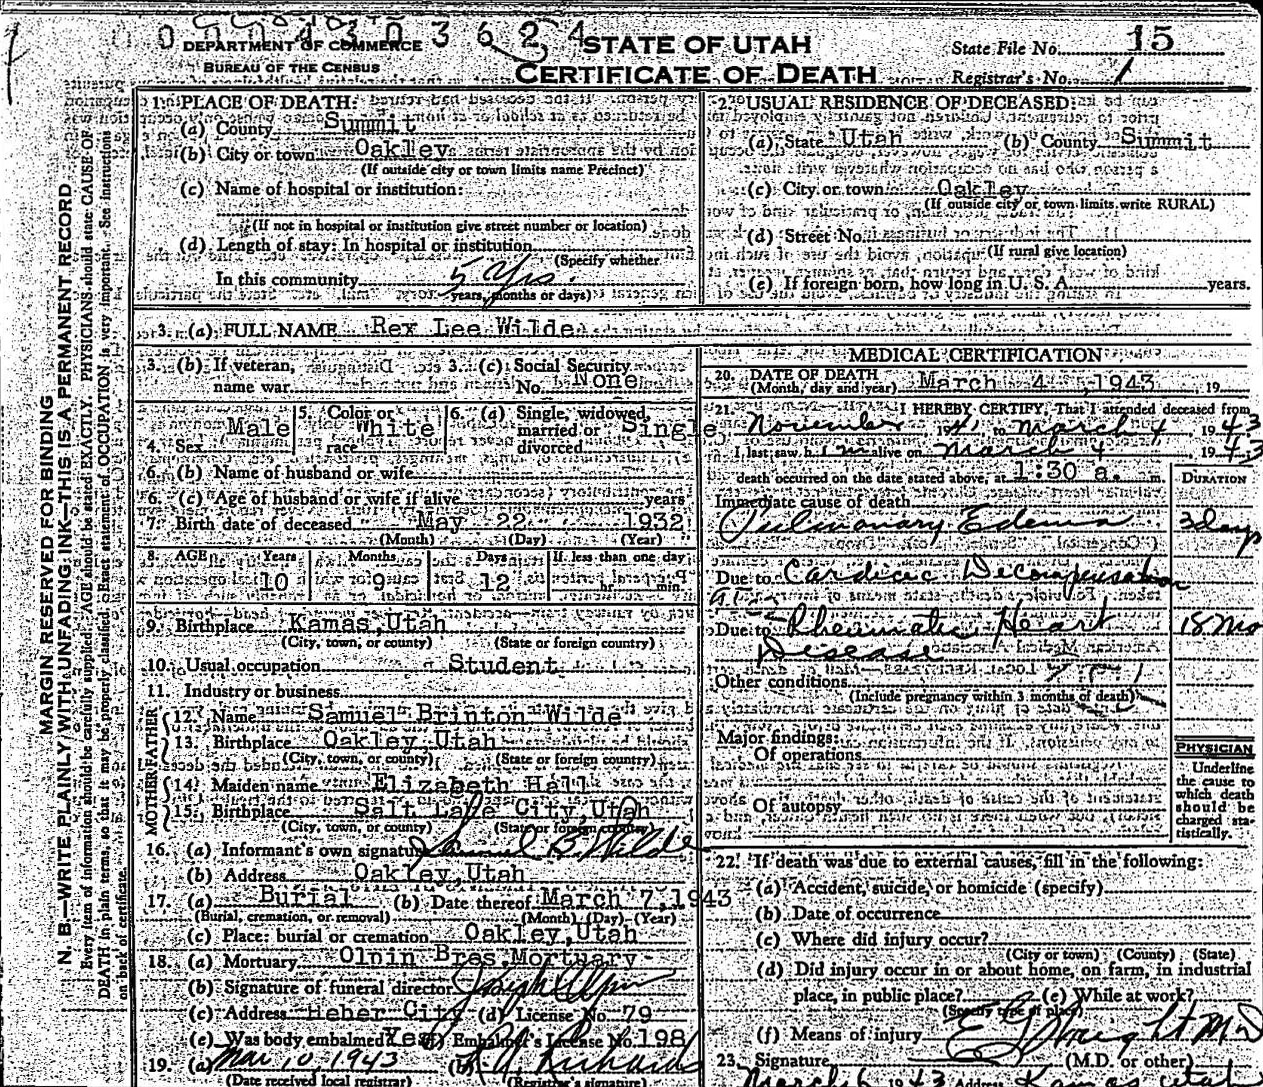 0 0 0 4 3 0 3 6 2 4
DEPARTMENT OF COMMERCE
BUREAU OF THE CENSUS
STATE OF UTAH
CERTIFICATE OF DEATH
State File No. 15
Registrar's No. 1
MARGIN RESERVED FOR BINDING
N. B.—WRITE PLAINLY WITH UNFADING INK—THIS IS A PERMANENT RECORD
Every item of information should be carefully supplied. AGE should be stated EXACTLY. PHYSICIANS should state CAUSE OF
DEATH in plain terms, so that it may be properly classified. Exact statement of OCCUPATION is very important. See instructions
on back of certificate.
1. PLACE OF DEATH:
(a) County Summit
(b) City or town Oakley
(If outside city or town limits name Precinct)
(c) Name of hospital or institution:
(If not in hospital or institution give street number or location)
(d) Length of stay: In hospital or institution
(Specify whether
In this community 5 Yrs.
years, months or days)
2. USUAL RESIDENCE OF DECEASED:
(a) State Utah (b) County Summit
(c) City or town Oakley
(If outside city or town limits write RURAL)
(d) Street No.
(If rural give location)
(e) If foreign born, how long in U. S. A. years.
3. (a) FULL NAME Rex Lee Wilde
3. (b) If veteran, name war
3. (c) Social Security No. None
4. Sex Male
5. Color or race White
6. (a) Single, widowed, married or divorced Single
6. (b) Name of husband or wife
6. (c) Age of husband or wife if alive years
7. Birth date of deceased May 22 1932
(Month) (Day) (Year)
8. AGE Years Months Days If less than one day
10 9 12 hr. min.
9. Birthplace Kamas, Utah
(City, town, or county) (State or foreign country)
10. Usual occupation Student
11. Industry or business
FATHER
12. Name Samuel Brinton Wilde
13. Birthplace Oakley, Utah
(City, town, or county) (State or foreign country)
MOTHER
14. Maiden name Elizabeth Hall
15. Birthplace Salt Lake City, Utah
(City, town, or county) (State or foreign country)
16. (a) Informant's own signature Samuel B. Wilde
(b) Address Oakley, Utah
17. (a) Burial (b) Date thereof March 7, 1943
(Burial, cremation, or removal) (Month) (Day) (Year)
(c) Place: burial or cremation Oakley, Utah
18. (a) Mortuary Olpin Bros. Mortuary
(b) Signature of funeral director Joseph Olpin
(c) Address Heber City (d) License No. 79
(e) Was body embalmed Yes (f) Embalmer's License No. 198
19. (a) Mar 10, 1943 (b) Richards
(Date received local registrar) (Registrar's signature)
MEDICAL CERTIFICATION
20. DATE OF DEATH
(Month, day and year) March 4, 1943 19
21. I HEREBY CERTIFY, That I attended deceased from
November 1941 to March 4, 1943
I last saw him alive on March 4, 1943
death occurred on the date stated above, at 1:30 a. m.
DURATION
Immediate cause of death
Pulmonary Edema 3 days
Due to Cardiac Decompensation
Due to Rheumatic Heart 18 Mo
Disease
Other conditions
(Include pregnancy within 3 months of death)
Major findings:
Of operations
Of autopsy
PHYSICIAN
Underline
the cause to
which death
should be
charged sta-
tistically.
22. If death was due to external causes, fill in the following:
(a) Accident, suicide, or homicide (specify)
(b) Date of occurrence
(c) Where did injury occur?
(City or town) (County) (State)
(d) Did injury occur in or about home, on farm, in industrial
place, in public place? (e) While at work?
(Specify type of place)
(f) Means of injury
23. Signature M.D.
(M.D. or other)
March 6 1943 Address Kamas